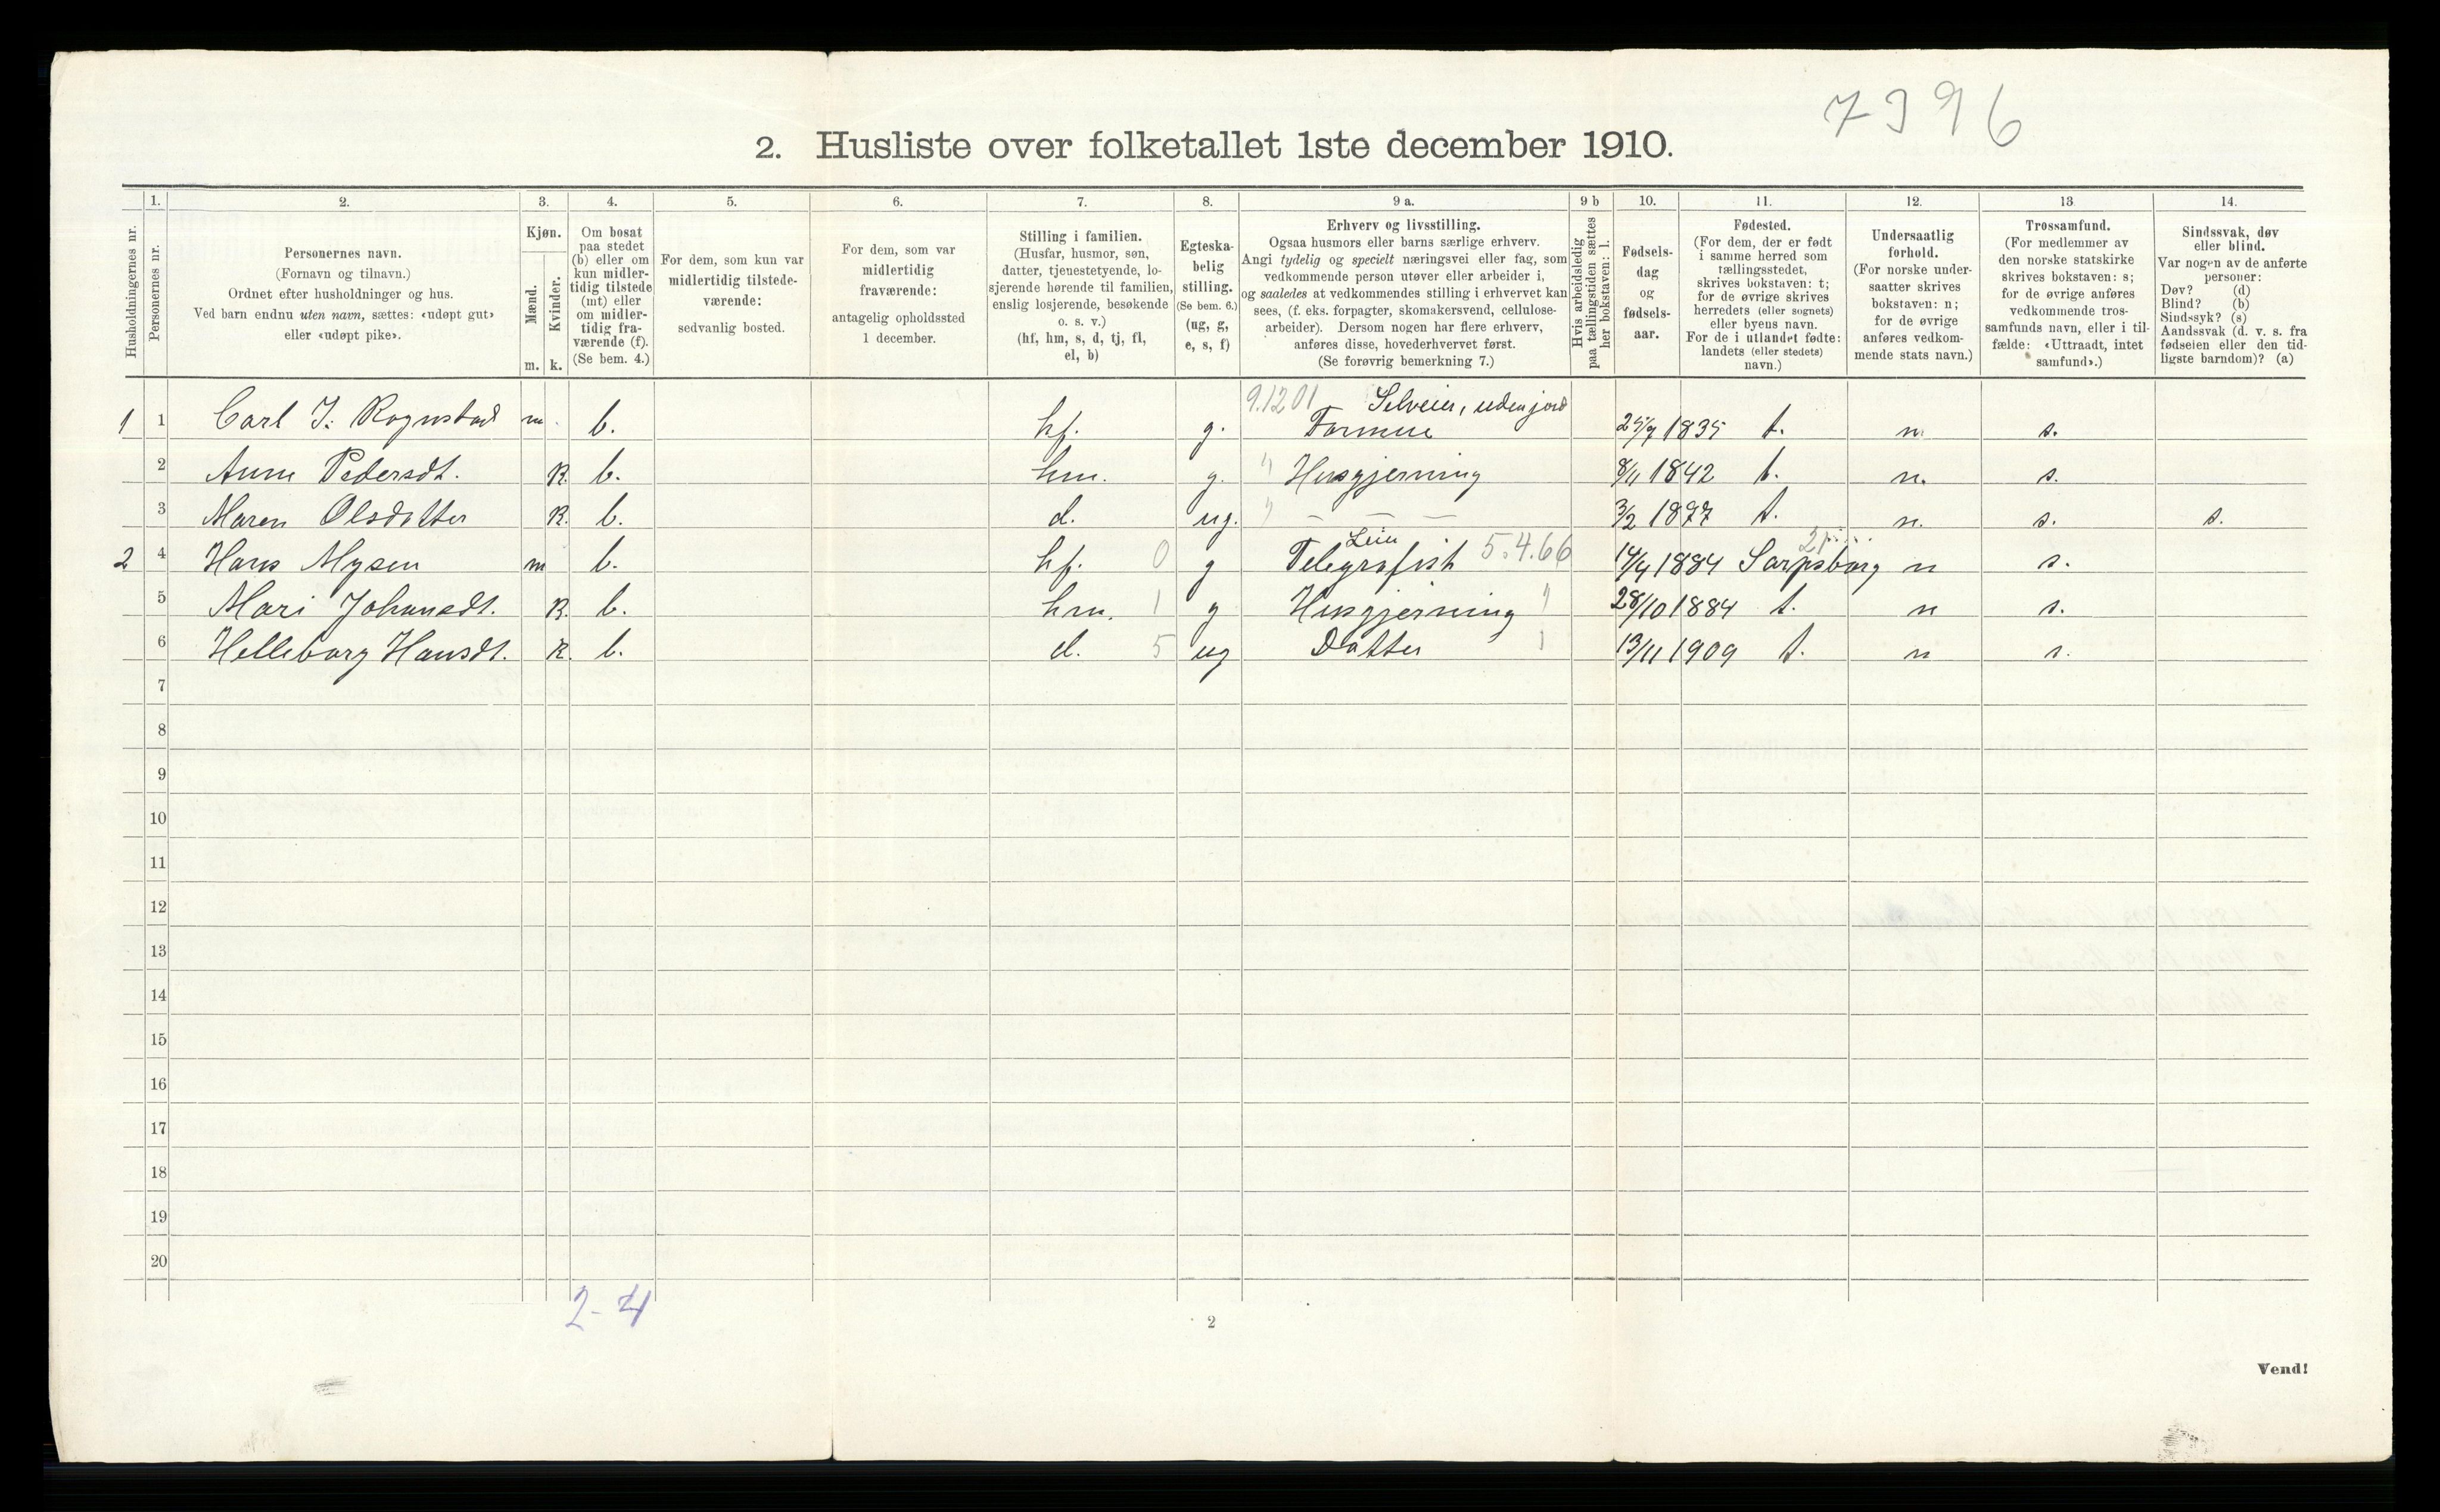 7396
2. Husliste over folketallet 1ste december 1910.
Husholdningernes nr.
1.
Personernes nr.
2.
Personernes navn.
(Fornavn og tilnavn.)
Ordnet efter husholdninger og hus.
Ved barn endnu uten navn, sættes: «udøpt gut»
eller «udøpt pike».
3.
Kjøn.
Mænd.
Kvinder.
m. k.
4.
Om bosat
paa stedet
(b) eller om
kun midler-
tidig tilstede
(mt) eller
om midler-
tidig fra-
værende (f).
(Se bem. 4.)
5.
For dem, som kun var
midlertidig tilstede-
værende:
sedvanlig bosted.
6.
For dem, som var
midlertidig
fraværende:
antagelig opholdssted
1 december.
7.
Stilling i familien.
(Husfar, husmor, søn,
datter, tjenestetyende, lo-
sjerende hørende til familien,
enslig losjerende, besøkende
o. s. v.)
(hf, hm, s, d, tj, fl,
el, b)
8.
Egteska-
belig
stilling.
(Se bem. 6.)
(ug, g,
e, s, f)
9 a.
Erhverv og livsstilling.
Ogsaa husmors eller barns særlige erhverv.
Angi tydelig og specielt næringsvei eller fag, som
vedkommende person utøver eller arbeider i,
og saaledes at vedkommendes stilling i erhvervet kan
sees, (f. eks. forpagter, skomakersvend, cellulose-
arbeider). Dersom nogen har flere erhverv,
anføres disse, hovederhvervet først.
(Se forøvrig bemerkning 7.)
9 b
Hvis arbeidsledig
paa tællingstiden sættes
her bokstaven: l.
10.
Fødsels-
dag
og
fødsels-
aar.
11.
Fødested.
(For dem, der er født
i samme herred som
tællingsstedet,
skrives bokstaven: t;
for de øvrige skrives
herredets (eller sognets)
eller byens navn.
For de i utlandet fødte:
landets (eller stedets)
navn.)
12.
Undersaatlig
forhold.
(For norske under-
saatter skrives
bokstaven: n;
for de øvrige
anføres vedkom-
mende stats navn.)
13
Trossamfund.
(For medlemmer av
den norske statskirke
skrives bokstaven: s;
for de øvrige anføres
vedkommende tros-
samfunds navn, eller i til-
fælde: «Uttraadt, intet
samfund».)
14.
Sindssvak, døv
eller blind.
Var nogen av de anførte
personer:
Døv? (d)
Blind? (b)
Sindssyk? (s)
Aandssvak (d. v. s. fra
fødselen eller den tid-
ligste barndom)? (a)
9.1201 Selveier, uden jord
1 1 Carl J. Rognstad m b. hf. g. Formue 25/7 1835 t. n. s.
2 Anne Pedersdt. K. b. hm. g. " Husgjerning 8/11 1842 t. n. s.
3 Maren Olsdatter K. b. d. ug. " — — — 3/2 1877 t. n. s. s.
Leier 21
2 4 Hans Mysen m b. hf. 0 g Telegrafist 5.4.66 14/4 1884 Sarpsborg n s.
5 Mari Johansdt. K. b. hm. 1 g Husgjerning " 28/10 1884 t. n s.
6 Helleborg Hansdt. K. b. d. 5 ug Datter " 13/11 1909 t. n s.
7
8
9
10
11
12
13
14
15
16
17
18
19
20
2-4
2
Vend!